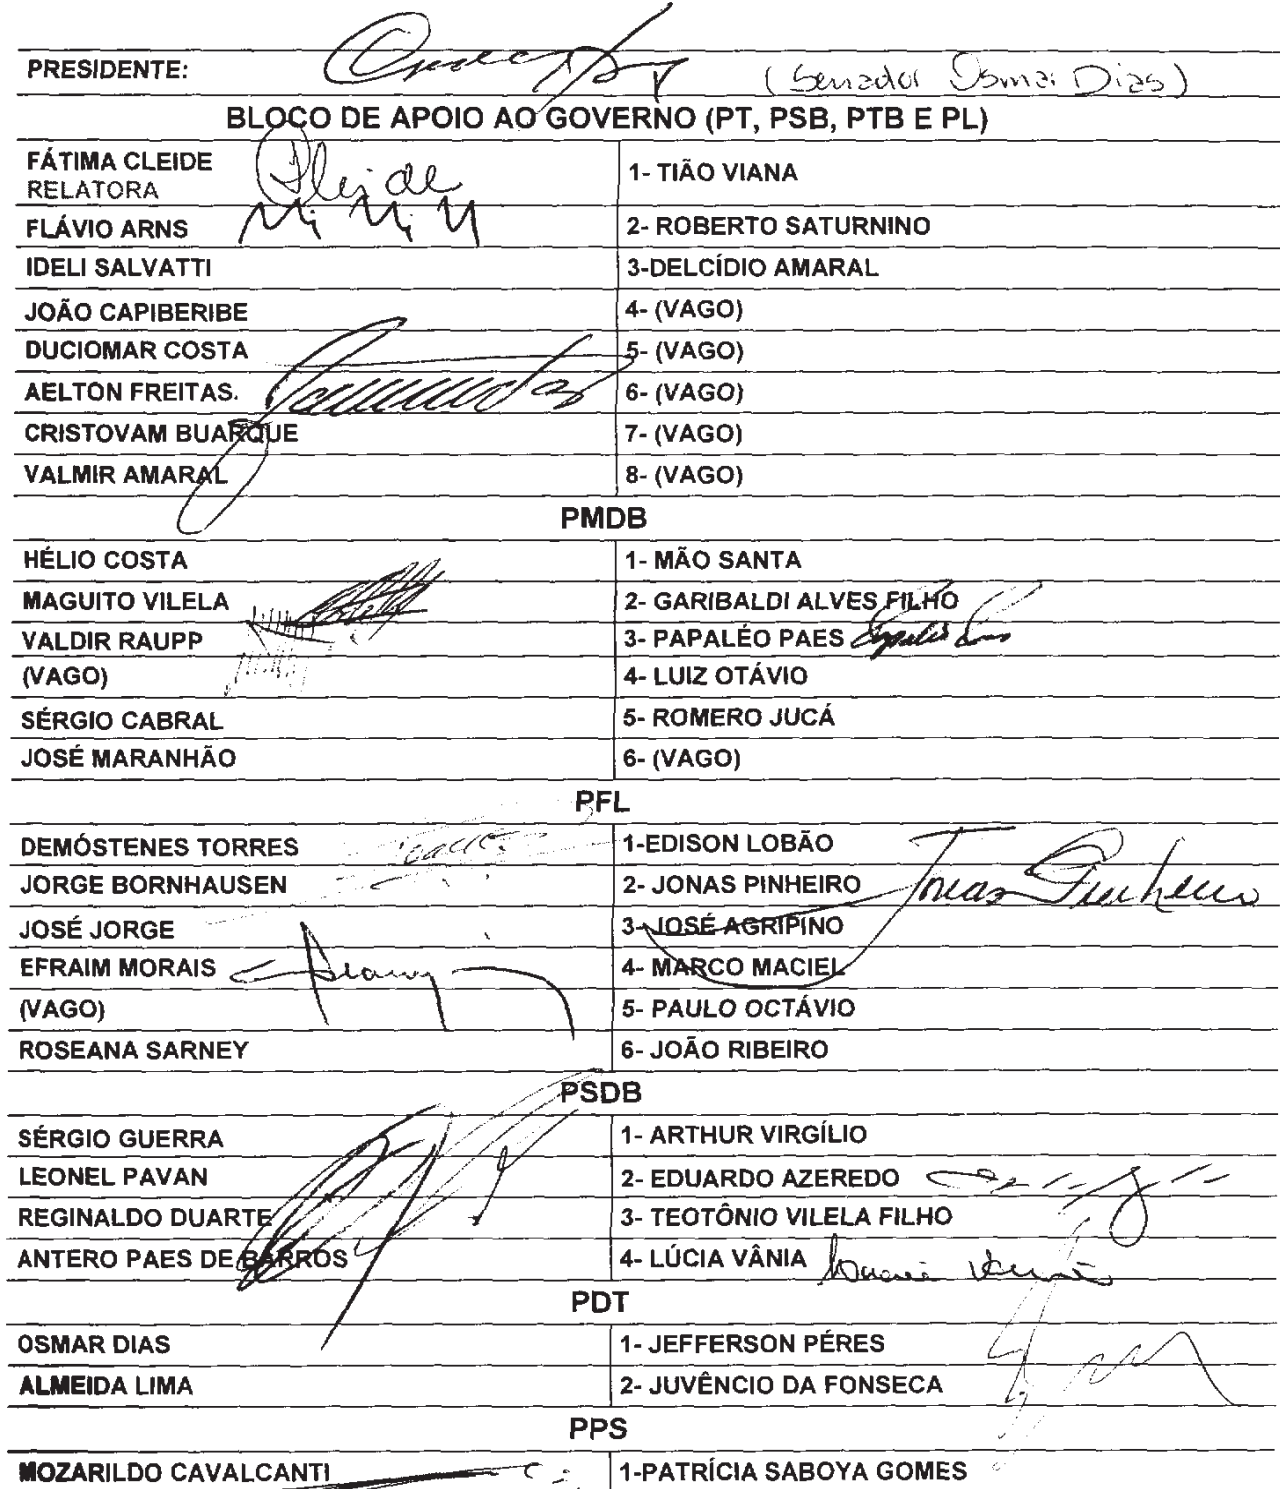 PRESIDENTE: (Senador Osmar Dias)
BLOCO DE APOIO AO GOVERNO (PT, PSB, PTB E PL)
FÁTIMA CLEIDE
RELATORA
Cleide
1- TIÃO VIANA
FLÁVIO ARNS
2- ROBERTO SATURNINO
IDELI SALVATTI
3-DELCÍDIO AMARAL
JOÃO CAPIBERIBE
4- (VAGO)
DUCIOMAR COSTA
5- (VAGO)
AELTON FREITAS.
6- (VAGO)
CRISTOVAM BUARQUE
7- (VAGO)
VALMIR AMARAL
8- (VAGO)
PMDB
HÉLIO COSTA
1- MÃO SANTA
MAGUITO VILELA
2- GARIBALDI ALVES FILHO
VALDIR RAUPP
3- PAPALÉO PAES
(VAGO)
4- LUIZ OTÁVIO
SÉRGIO CABRAL
5- ROMERO JUCÁ
JOSÉ MARANHÃO
6- (VAGO)
PFL
DEMÓSTENES TORRES
1-EDISON LOBÃO
JORGE BORNHAUSEN
2- JONAS PINHEIRO Jonas Pinheiro
JOSÉ JORGE
3- JOSÉ AGRIPINO
EFRAIM MORAIS
4- MARCO MACIEL
(VAGO)
5- PAULO OCTÁVIO
ROSEANA SARNEY
6- JOÃO RIBEIRO
PSDB
SÉRGIO GUERRA
1- ARTHUR VIRGÍLIO
LEONEL PAVAN
2- EDUARDO AZEREDO
REGINALDO DUARTE
3- TEOTÔNIO VILELA FILHO
ANTERO PAES DE BARROS
4- LÚCIA VÂNIA
PDT
OSMAR DIAS
1- JEFFERSON PÉRES
ALMEIDA LIMA
2- JUVÊNCIO DA FONSECA
PPS
MOZARILDO CAVALCANTI
1-PATRÍCIA SABOYA GOMES